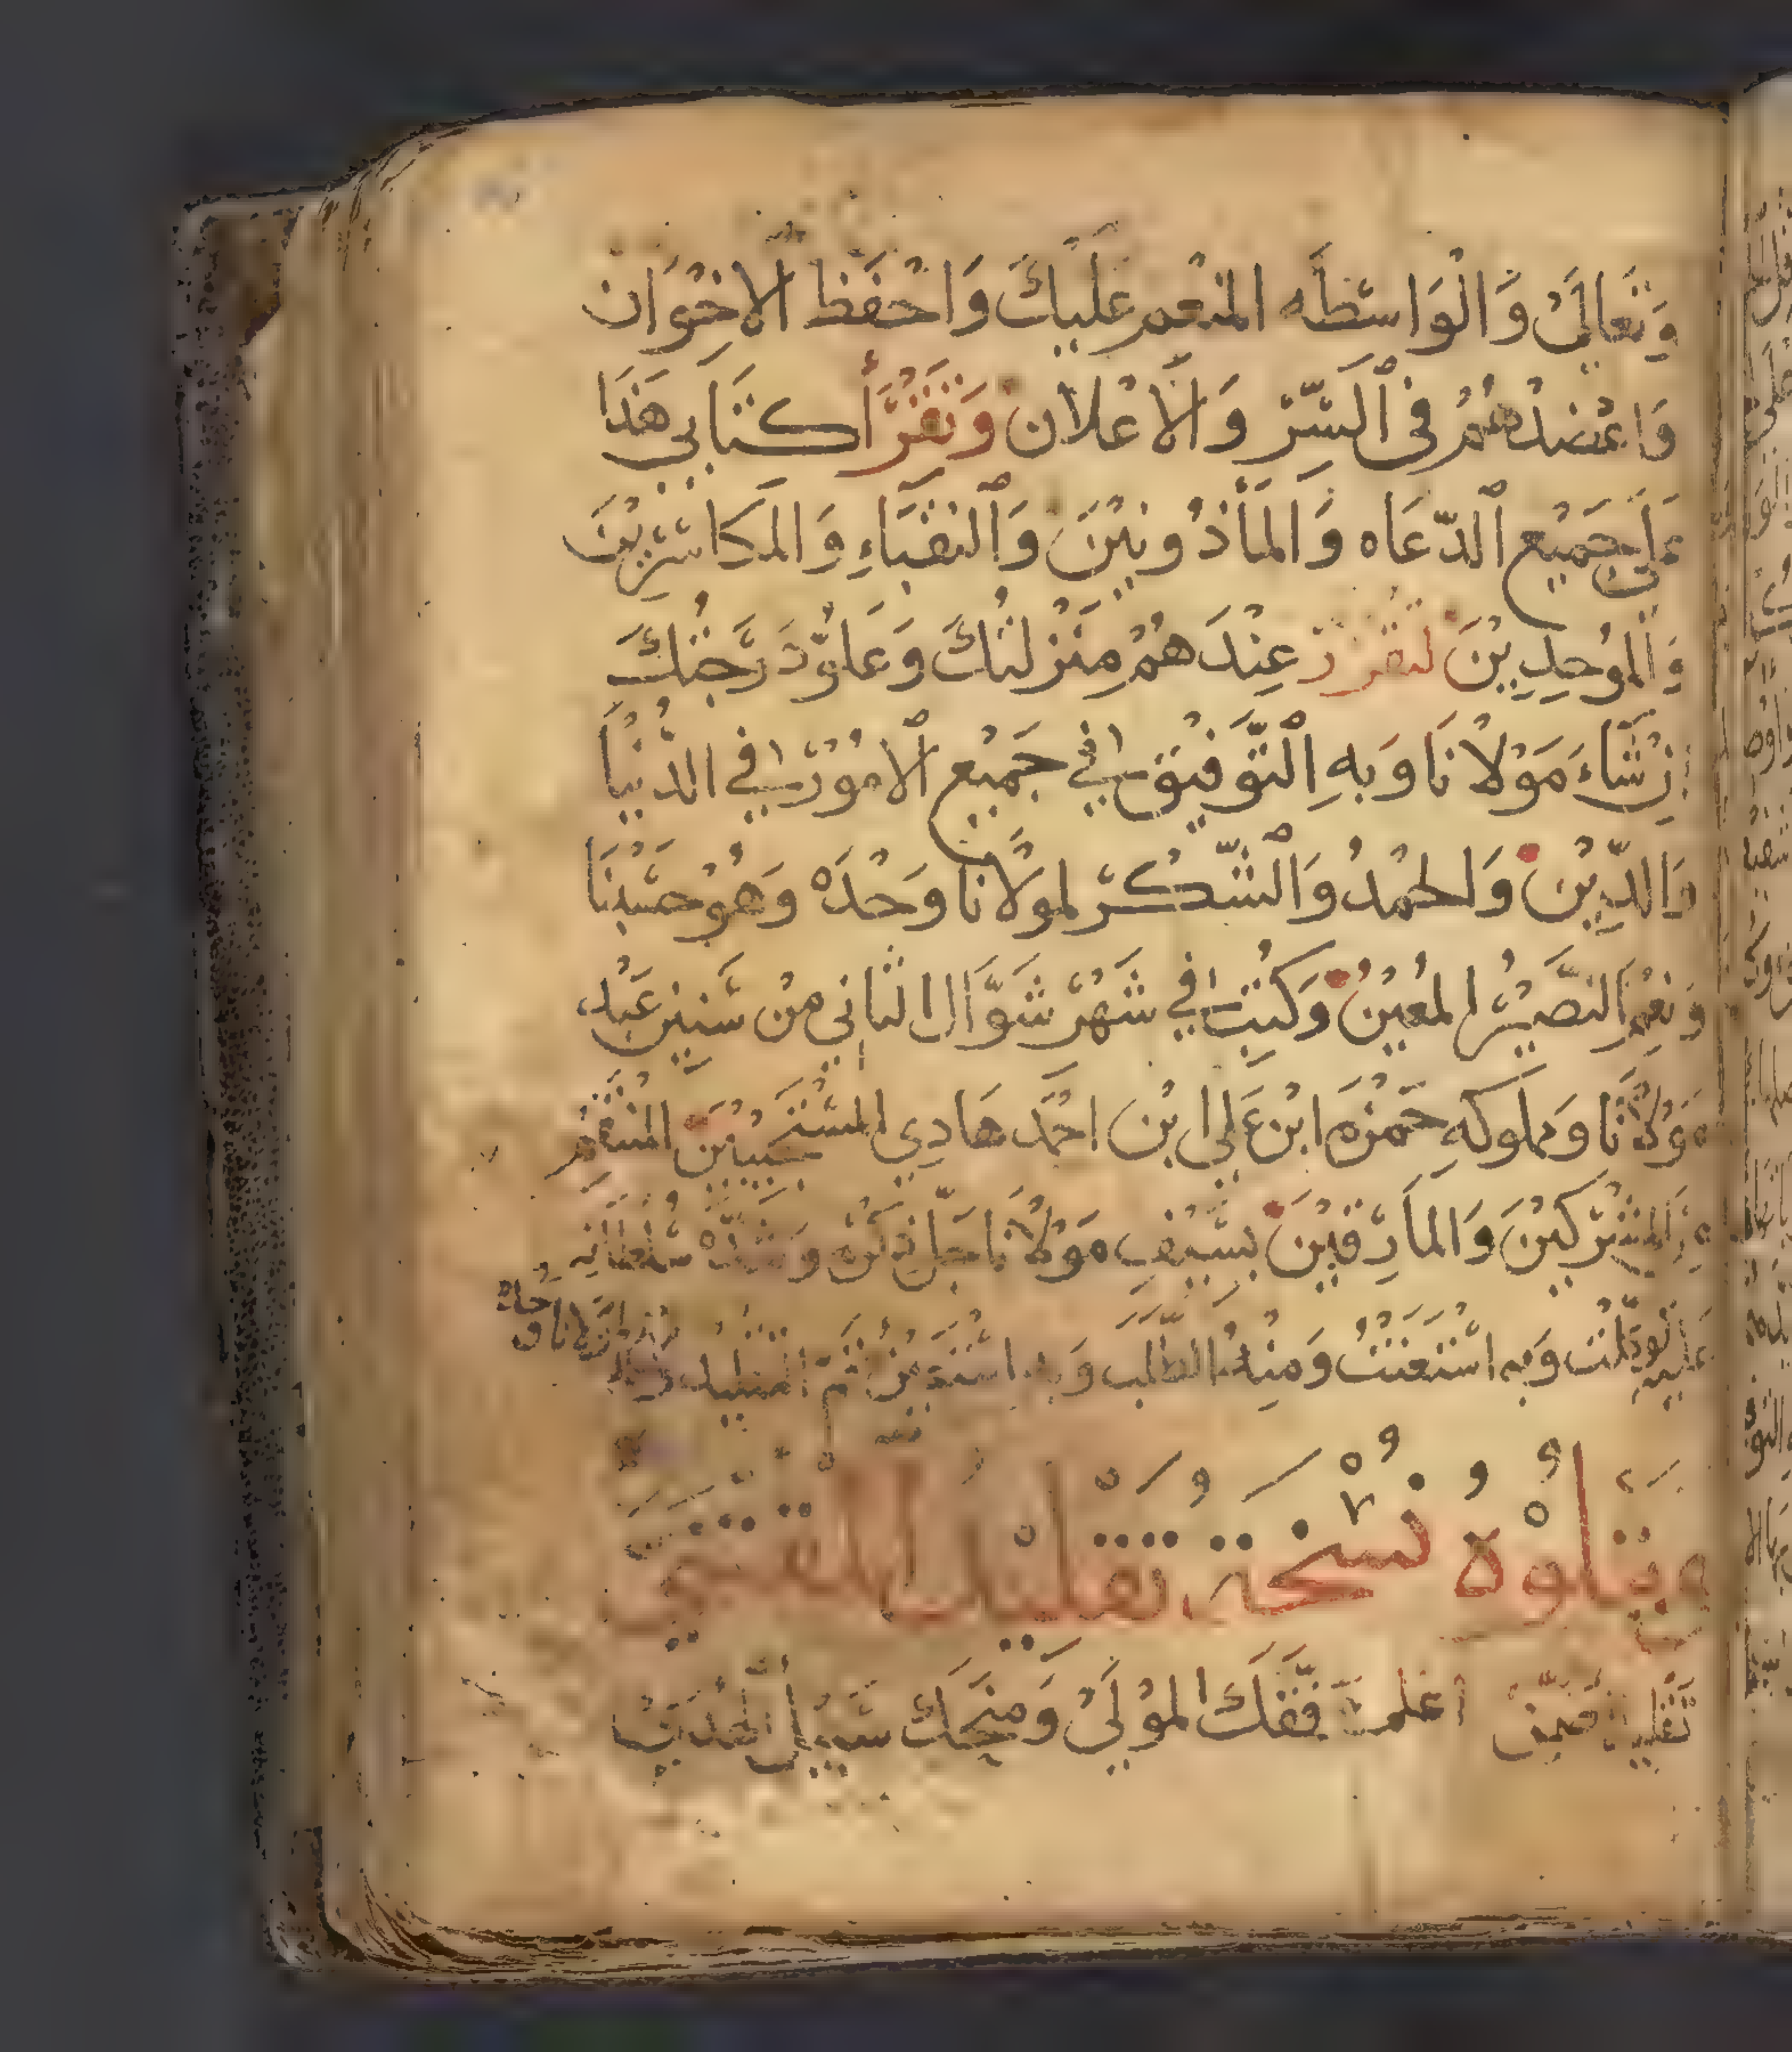 وَتَعَالَىْ وَالْوَاسِطَه المنْعِم عَلَيكَ وَاحْفَظ الاخْوَان
وَاعْضدْهُمْ فى السِّرّ وَالَاعْلان وَتَقْرَأ كتَابي هَذَا
عَلَى جَمَيْع الدّعَاه وَالمَأذُونيْنَ وَالنقبَاءِ وَالمكَاسَرِيْنَ
وَالمُوحِدِيْنَ لتقرر عِنْدَهُمْ مَنْزلتُكَ وَعَلُوّ دَرَجَتُكَ
اِنْشَاءَ مَوْلانَا وَبهِ التَّوَفيْق في جَمَيْع الامُوْرْ في الدُّنْيَا
وَالدِّيْنْ وَالحمْدُ وَالشّكْرْ لمولَانَا وَحْدَهْ وَهُوْ حسْبُنَا
وَنِعْمَ النصَّيْرُ المُعِيْنْ وَكَتِبَ في شَهْرْ شَوَّال الثاني منْ سَنينْ عَبْد
مَوْلانَا وَمملوكهِ حَمْزَه ابْن عَلي ابْن احْمَد هَادِي المسْتَجَيْبيْنَ المنْتَقِمْ
مِنَ المشْرَكيْنَ وَالمَارِقيْنَ بسَيْفِ مَوْلانَا جلّ ذكْرُه وَشدّه سُلْطَانِه
عَلَيهِ توَكَلْتْ وَبه اسْتَعَنْتُ وَمنْهُ الطّلَب وَبه اسْتَعِيْنُ تَمّ التقليْد
مَوْلانَا وَحدهْ
وَيتلوْهُ نُسْخَة تقليْد المقتنى
اعْلم وَفّقَكَ المَوْلَىْ وَمنَحَك سَبيْل